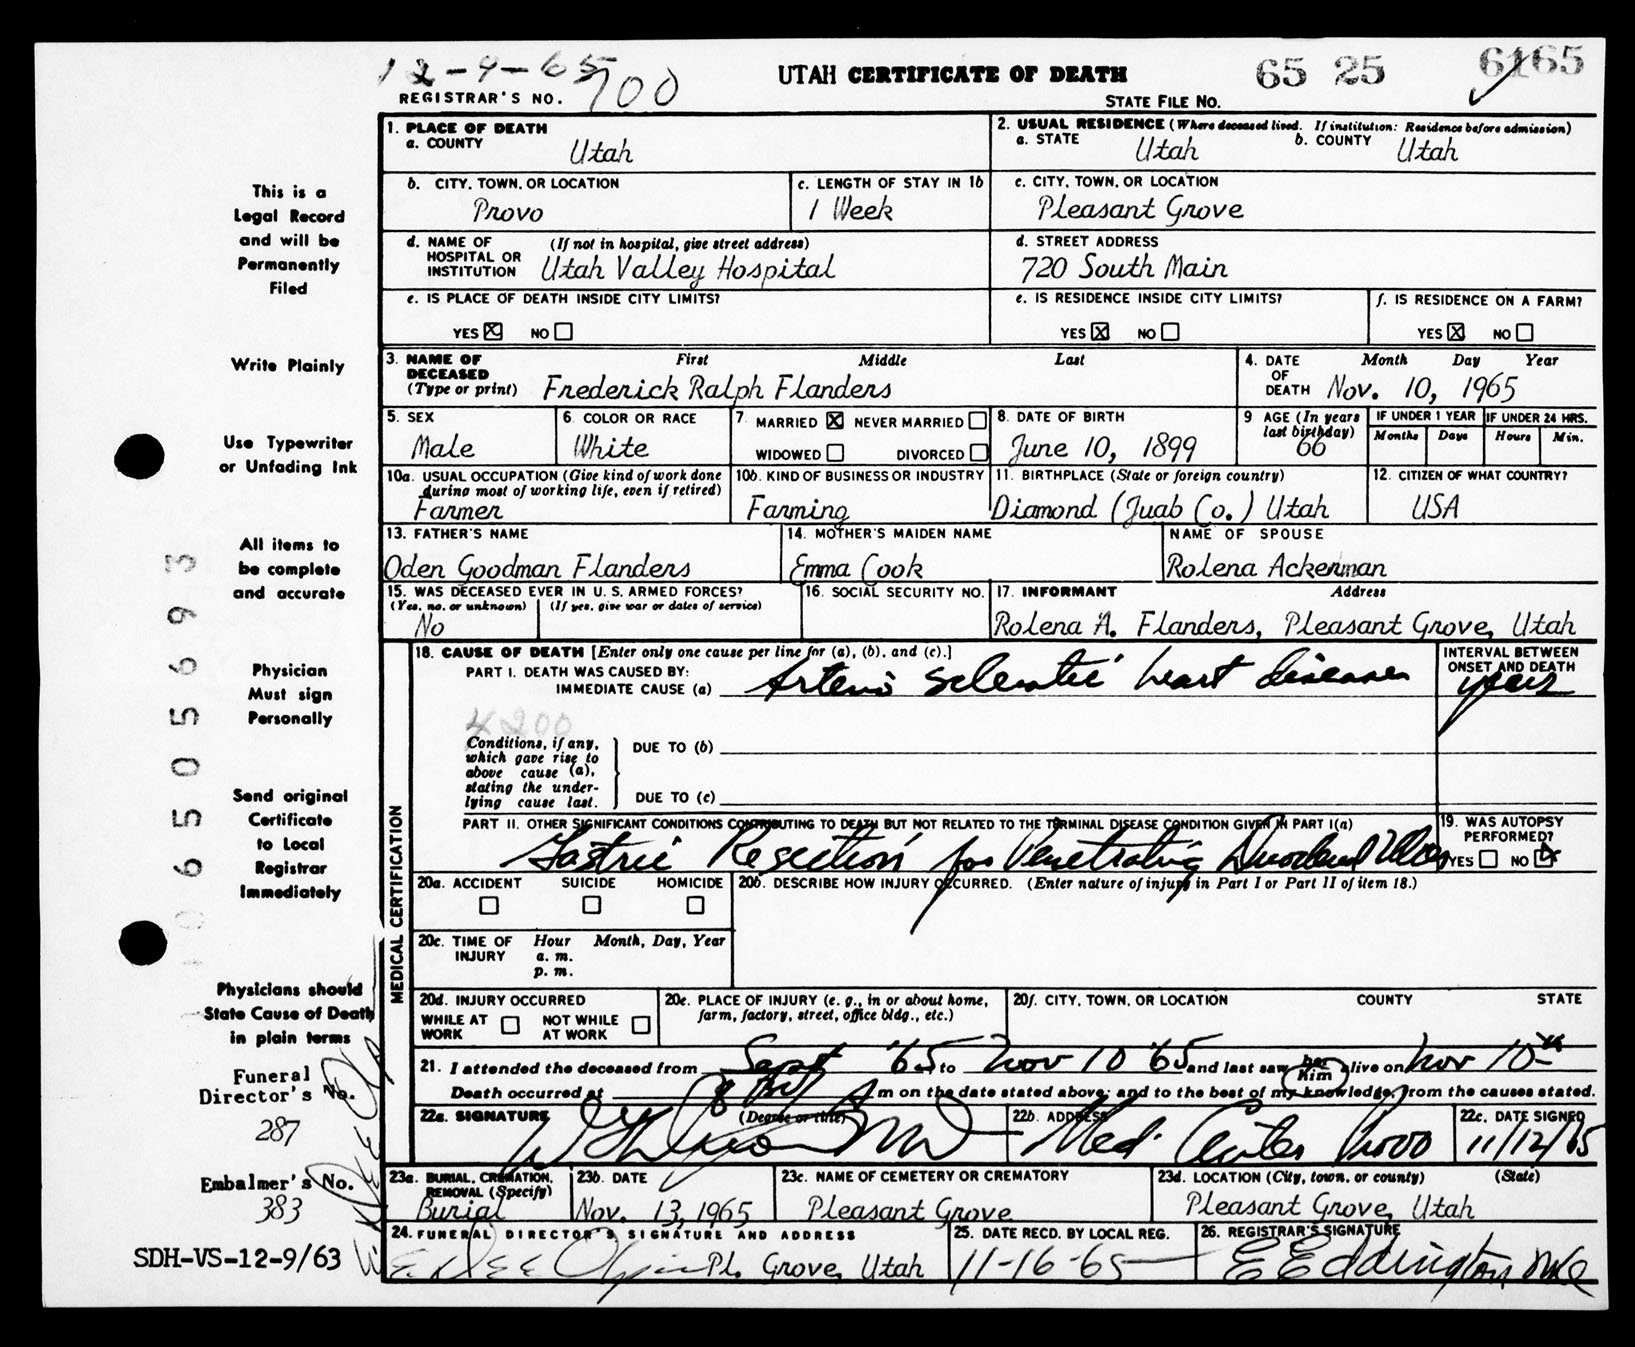 12-9-65
REGISTRAR'S NO. 700
UTAH CERTIFICATE OF DEATH
STATE FILE NO.
65 25 6165
This is a
Legal Record
and will be
Permanently
Filed
Write Plainly
Use Typewriter
or Unfading Ink
All items to
be complete
and accurate
Physician
Must sign
Personally
Send original
Certificate
to Local
Registrar
Immediately
Physicians should
State Cause of Death
in plain terms
Funeral
Director's No.
287
Embalmer's No.
383
SDH-VS-12-9/63
06505693
1. PLACE OF DEATH
a. COUNTY Utah
2. USUAL RESIDENCE (Where deceased lived. If institution: Residence before admission)
a. STATE Utah b. COUNTY Utah
b. CITY, TOWN, OR LOCATION
Provo
c. LENGTH OF STAY IN 1b
1 Week
c. CITY, TOWN, OR LOCATION
Pleasant Grove
d. NAME OF HOSPITAL OR INSTITUTION (If not in hospital, give street address)
Utah Valley Hospital
d. STREET ADDRESS
720 South Main
e. IS PLACE OF DEATH INSIDE CITY LIMITS?
YES ☒ NO ☐
e. IS RESIDENCE INSIDE CITY LIMITS?
YES ☒ NO ☐
f. IS RESIDENCE ON A FARM?
YES ☒ NO ☐
3. NAME OF DECEASED (Type or print) First Middle Last
Frederick Ralph Flanders
4. DATE OF DEATH Month Day Year
Nov. 10, 1965
5. SEX
Male
6. COLOR OR RACE
White
7. MARRIED ☒ NEVER MARRIED ☐
WIDOWED ☐ DIVORCED ☐
8. DATE OF BIRTH
June 10, 1899
9 AGE (In years last birthday)
66
IF UNDER 1 YEAR
Months Days
IF UNDER 24 HRS.
Hours Min.
10a. USUAL OCCUPATION (Give kind of work done during most of working life, even if retired)
Farmer
10b. KIND OF BUSINESS OR INDUSTRY
Farming
11. BIRTHPLACE (State or foreign country)
Diamond (Juab Co.) Utah
12. CITIZEN OF WHAT COUNTRY?
USA
13. FATHER'S NAME
Oden Goodman Flanders
14. MOTHER'S MAIDEN NAME
Emma Cook
NAME OF SPOUSE
Rolena Ackerman
15. WAS DECEASED EVER IN U. S. ARMED FORCES?
(Yes, no, or unknown) (If yes, give war or dates of service)
No
16. SOCIAL SECURITY NO.
17. INFORMANT Address
Rolena A. Flanders, Pleasant Grove, Utah
MEDICAL CERTIFICATION
18. CAUSE OF DEATH [Enter only one cause per line for (a), (b), and (c).]
PART I. DEATH WAS CAUSED BY:
IMMEDIATE CAUSE (a) Arterio sclerotic heart disease
INTERVAL BETWEEN ONSET AND DEATH
years
4200
Conditions, if any, which gave rise to above cause (a), stating the underlying cause last.
DUE TO (b)
DUE TO (c)
PART II. OTHER SIGNIFICANT CONDITIONS CONTRIBUTING TO DEATH BUT NOT RELATED TO THE TERMINAL DISEASE CONDITION GIVEN IN PART I(a)
Gastric Resection for Penetrating Duodenal Ulcer
19. WAS AUTOPSY PERFORMED?
YES ☐ NO ☒
20a. ACCIDENT SUICIDE HOMICIDE
☐ ☐ ☐
20b. DESCRIBE HOW INJURY OCCURRED. (Enter nature of injury in Part I or Part II of item 18.)
20c. TIME OF INJURY Hour Month, Day, Year
a. m.
p. m.
20d. INJURY OCCURRED
WHILE AT WORK ☐ NOT WHILE AT WORK ☐
20e. PLACE OF INJURY (e. g., in or about home, farm, factory, street, office bldg., etc.)
20f. CITY, TOWN, OR LOCATION COUNTY STATE
21. I attended the deceased from Sept '65 to Nov 10 '65 and last saw her him alive on Nov 10th
Death occurred at 8 m on the date stated above; and to the best of my knowledge, from the causes stated.
22a. SIGNATURE (Degree or title)
MD
22b. ADDRESS
Med. Center Provo
22c. DATE SIGNED
11/12/65
23a. BURIAL, CREMATION, REMOVAL (Specify)
Burial
23b. DATE
Nov. 13, 1965
23c. NAME OF CEMETERY OR CREMATORY
Pleasant Grove
23d. LOCATION (City, town, or county) (State)
Pleasant Grove, Utah
24. FUNERAL DIRECTOR'S SIGNATURE AND ADDRESS
Pl. Grove, Utah
25. DATE RECD. BY LOCAL REG.
11-16-65
26. REGISTRAR'S SIGNATURE
E E Eddington